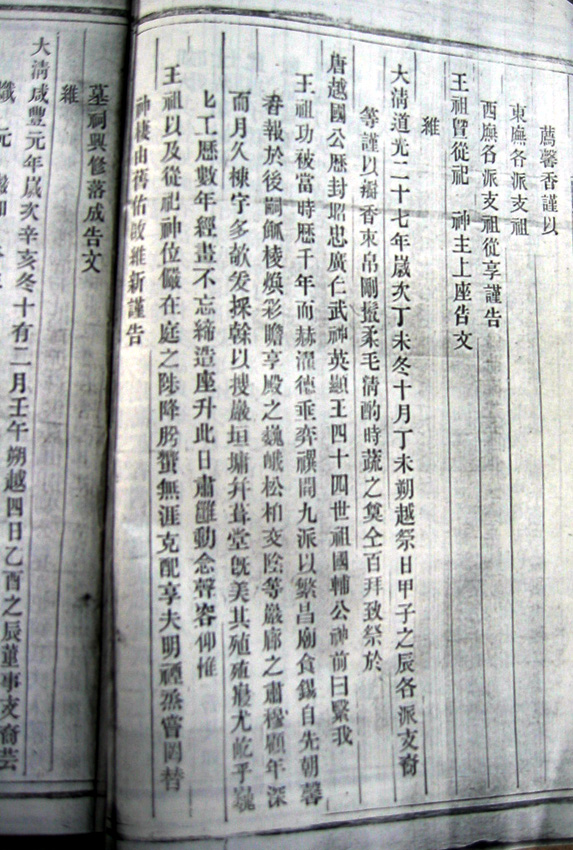 薦馨香謹以
東廡各派支祖
西廡各派支祖從享謹告
王祖暨從祀 神主上座告文
維
大清道光二十七年歲次丁未冬十月丁未朔越祭日甲子之辰各派支裔
等謹以瓣香束帛剛鬣柔毛清酌時蔬之奠仝百拜致祭於
唐越國公歷封昭忠廣仁武神英顯王四十四世祖國輔公神前曰繄我
王祖功被當時歷千年而赫濯德垂奕禩閱九派以繁昌廟食錫自先朝馨
香報於後嗣觚棱煥彩瞻享殿之巍峨松柏交陰等嚴廊之肅穆顧年深
而月久棟宇多欹爰採榦以搜巖垣墉幷葺堂旣美其殖殖寢尤屹乎巍巍
工歷數年經畫不忘締造座升此日肅雝動念聲容仰惟
王祖以及從祀神位儼在庭之陟降肸蠁無涯克配享夫明禋烝嘗罔替
神棲由舊佑啟維新謹告
墓祠興修落成告文
維
大清咸豐元年歲次辛亥冬十有二月壬午朔越四日乙酉之辰董事支裔芸